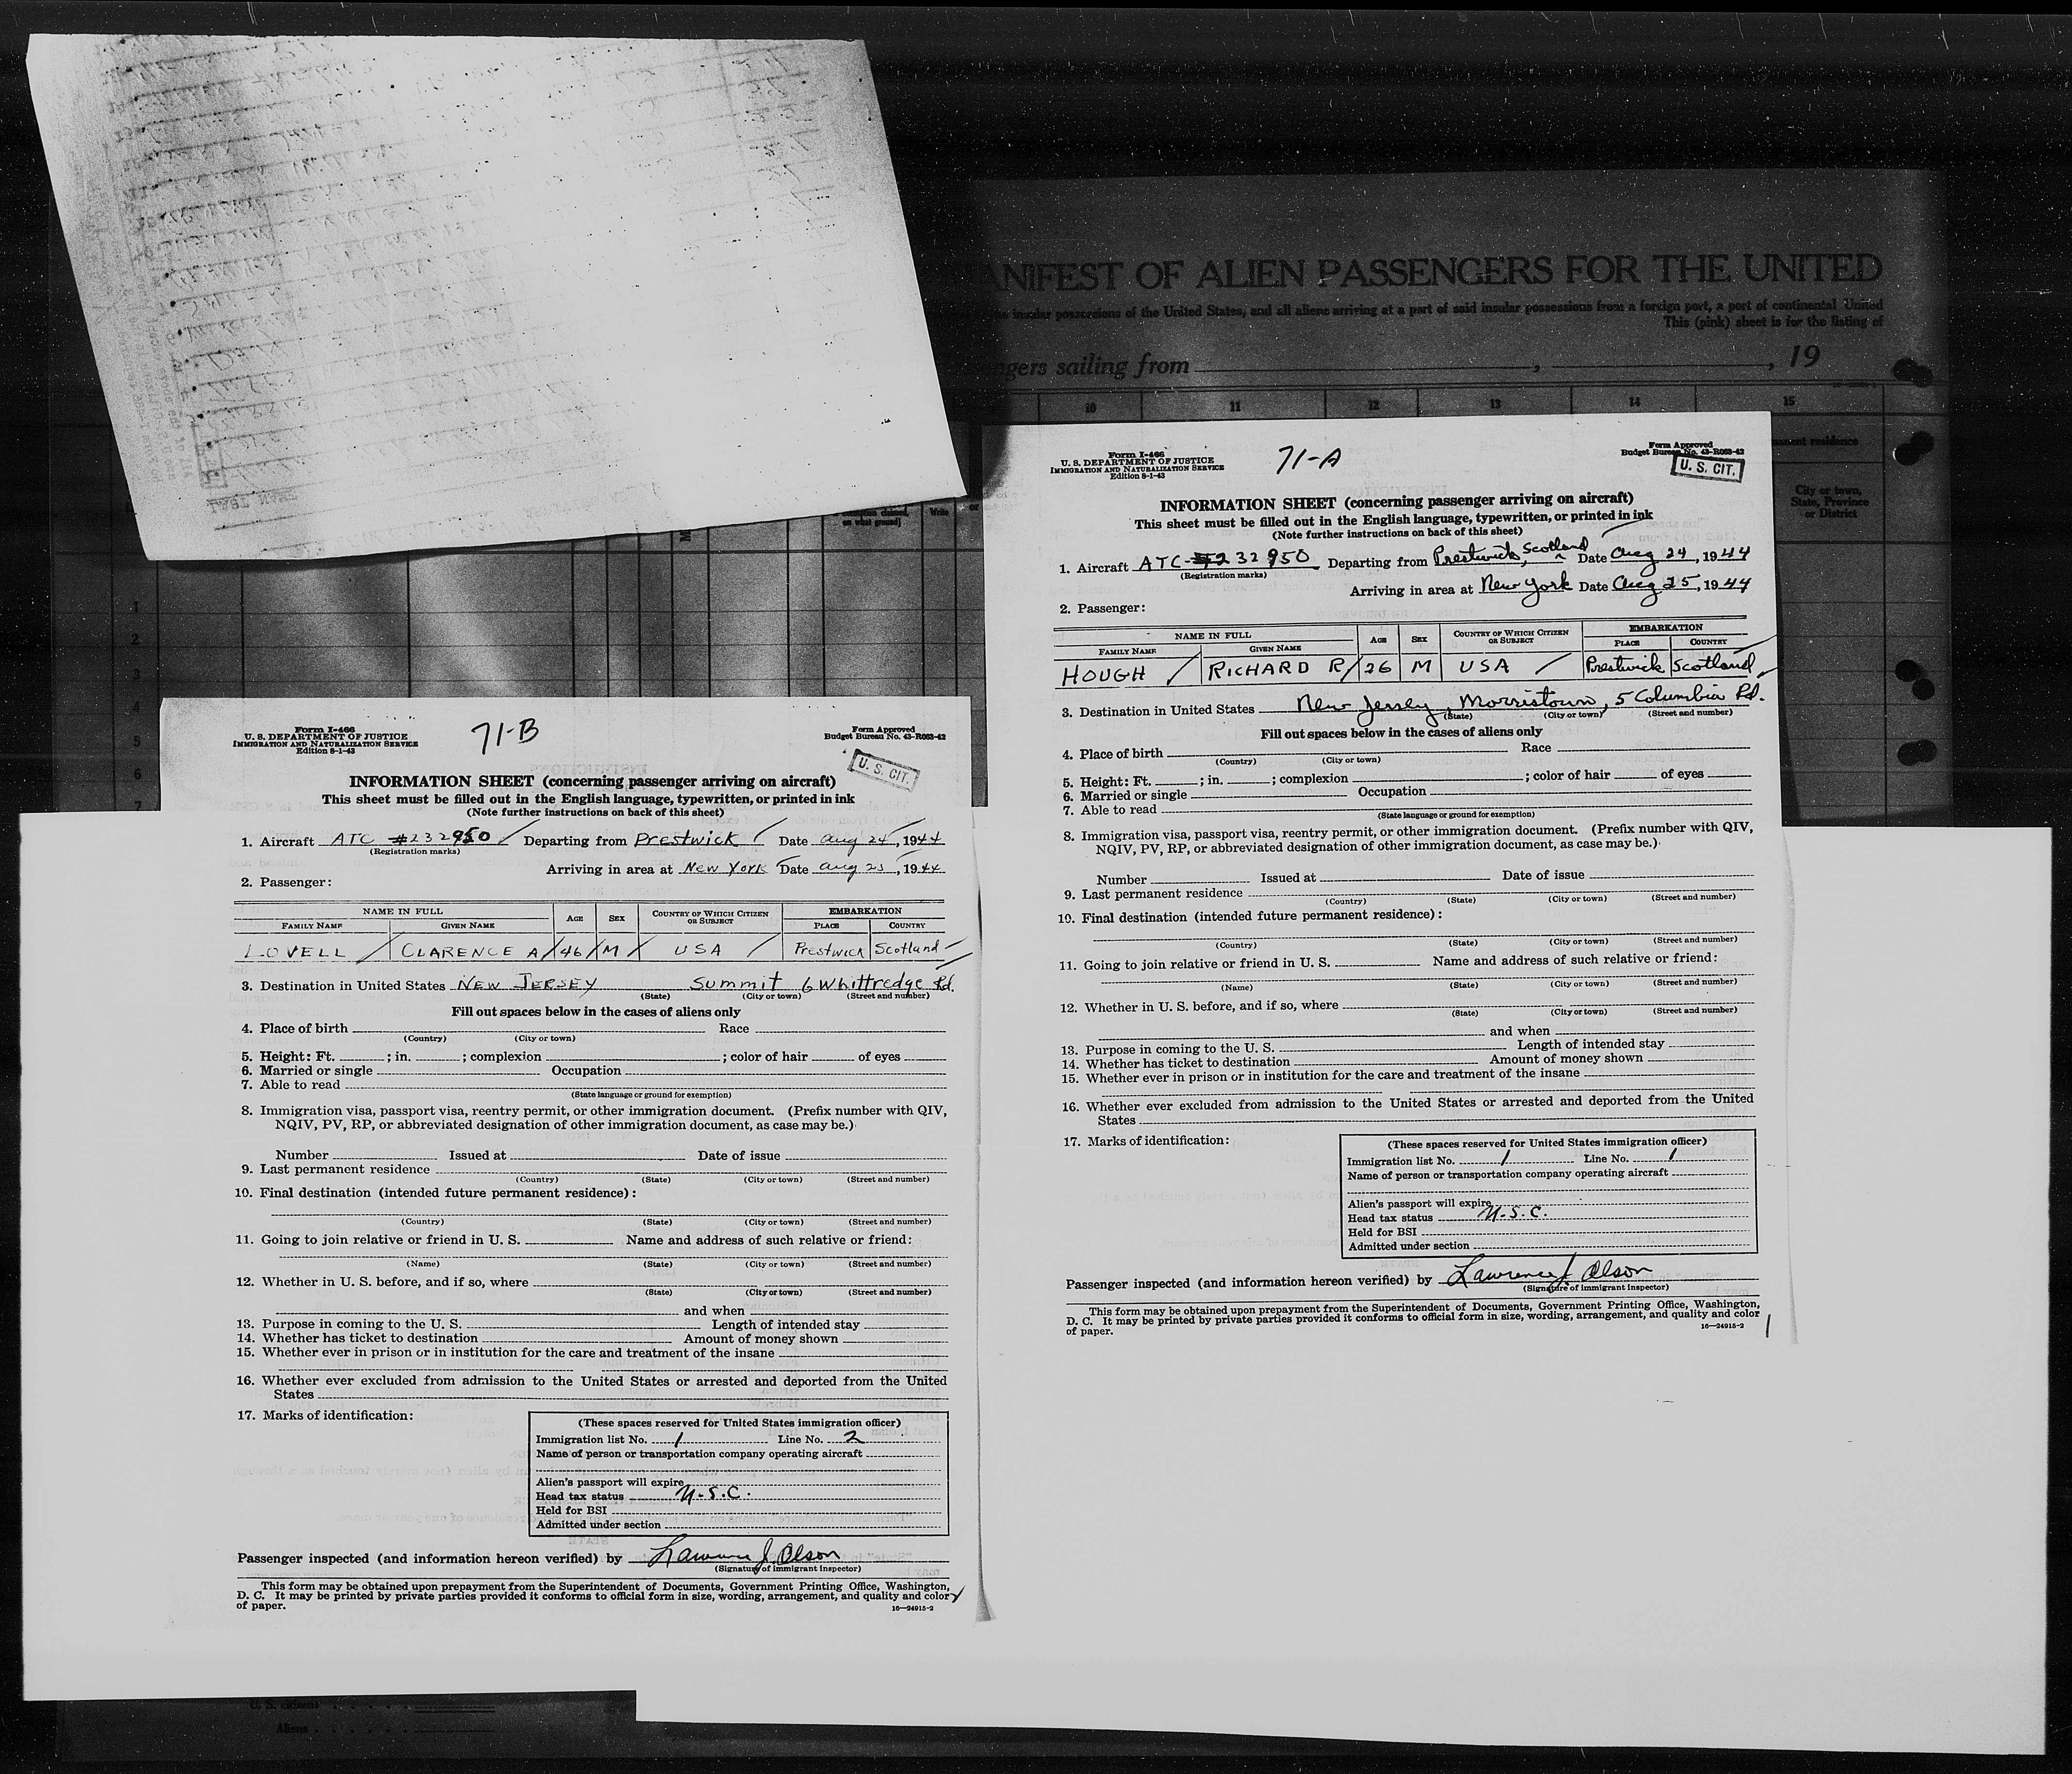 ANIFEST OF ALIEN PASSENGERS FOR THE UNITED
insular possessions of the United States, and all aliens arriving at a part of said insular possessions from a foreign port, a port of continental United
This (pink) sheet is for the listing of
ngers sailing from , , 19
10 11 12 13 14 15
manent residence
City or town,
State, Province
or District
on what ground]
Write
1
2
3
4
5
6
7
U. S. citizens
Aliens
Form I-466
U. S. DEPARTMENT OF JUSTICE
IMMIGRATION AND NATURALIZATION SERVICE
Edition 8-1-43
71-B
Form Approved
Budget Bureau No. 43-R063-42
U. S. CIT.
INFORMATION SHEET (concerning passenger arriving on aircraft)
This sheet must be filled out in the English language, typewritten, or printed in ink
(Note further instructions on back of this sheet)
1. Aircraft ATC #232950 Departing from Prestwick Date Aug 24, 1944
(Registration marks)
Arriving in area at New York Date Aug 25, 1944
2. Passenger:
NAME IN FULL AGE SEX COUNTRY OF WHICH CITIZEN OR SUBJECT EMBARKATION
FAMILY NAME GIVEN NAME PLACE COUNTRY
LOVELL CLARENCE A 46 M USA Prestwick Scotland
3. Destination in United States NEW JERSEY Summit 6 Whittredge Rd.
(State) (City or town) (Street and number)
Fill out spaces below in the cases of aliens only
4. Place of birth Race
(Country) (City or town)
5. Height: Ft. ; in. ; complexion ; color of hair of eyes
6. Married or single Occupation
7. Able to read
(State language or ground for exemption)
8. Immigration visa, passport visa, reentry permit, or other immigration document. (Prefix number with QIV,
NQIV, PV, RP, or abbreviated designation of other immigration document, as case may be.)
Number Issued at Date of issue
9. Last permanent residence
(Country) (State) (City or town) (Street and number)
10. Final destination (intended future permanent residence):
(Country) (State) (City or town) (Street and number)
11. Going to join relative or friend in U. S. Name and address of such relative or friend:
(Name) (State) (City or town) (Street and number)
12. Whether in U. S. before, and if so, where
(State) (City or town) (Street and number)
and when
13. Purpose in coming to the U. S. Length of intended stay
14. Whether has ticket to destination Amount of money shown
15. Whether ever in prison or in institution for the care and treatment of the insane
16. Whether ever excluded from admission to the United States or arrested and deported from the United
States
17. Marks of identification:
(These spaces reserved for United States immigration officer)
Immigration list No. 1 Line No. 2
Name of person or transportation company operating aircraft
Alien's passport will expire
Head tax status U.S.C.
Held for BSI
Admitted under section
Passenger inspected (and information hereon verified) by Lawrence J. Olson
(Signature of immigrant inspector)
This form may be obtained upon prepayment from the Superintendent of Documents, Government Printing Office, Washington,
D. C. It may be printed by private parties provided it conforms to official form in size, wording, arrangement, and quality and color
of paper. 16—24915-2
Form I-466
U. S. DEPARTMENT OF JUSTICE
IMMIGRATION AND NATURALIZATION SERVICE
Edition 8-1-43
71-A
Form Approved
Budget Bureau No. 43-R063-42
U. S. CIT.
INFORMATION SHEET (concerning passenger arriving on aircraft)
This sheet must be filled out in the English language, typewritten, or printed in ink
(Note further instructions on back of this sheet)
1. Aircraft ATC-#232950 Departing from Prestwick, Scotland Date Aug 24, 1944
(Registration marks)
Arriving in area at New York Date Aug 25, 1944
2. Passenger:
NAME IN FULL AGE SEX COUNTRY OF WHICH CITIZEN OR SUBJECT EMBARKATION
FAMILY NAME GIVEN NAME PLACE COUNTRY
HOUGH RICHARD R 26 M USA Prestwick Scotland
3. Destination in United States New Jersey, Morristown, 5 Columbia Rd.
(State) (City or town) (Street and number)
Fill out spaces below in the cases of aliens only
4. Place of birth Race
(Country) (City or town)
5. Height: Ft. ; in. ; complexion ; color of hair of eyes
6. Married or single Occupation
7. Able to read
(State language or ground for exemption)
8. Immigration visa, passport visa, reentry permit, or other immigration document. (Prefix number with QIV,
NQIV, PV, RP, or abbreviated designation of other immigration document, as case may be.)
Number Issued at Date of issue
9. Last permanent residence
(Country) (State) (City or town) (Street and number)
10. Final destination (intended future permanent residence):
(Country) (State) (City or town) (Street and number)
11. Going to join relative or friend in U. S. Name and address of such relative or friend:
(Name) (State) (City or town) (Street and number)
12. Whether in U. S. before, and if so, where
(State) (City or town) (Street and number)
and when
13. Purpose in coming to the U. S. Length of intended stay
14. Whether has ticket to destination Amount of money shown
15. Whether ever in prison or in institution for the care and treatment of the insane
16. Whether ever excluded from admission to the United States or arrested and deported from the United
States
17. Marks of identification:
(These spaces reserved for United States immigration officer)
Immigration list No. 1 Line No. 1
Name of person or transportation company operating aircraft
Alien's passport will expire
Head tax status U.S.C.
Held for BSI
Admitted under section
Passenger inspected (and information hereon verified) by Lawrence J. Olson
(Signature of immigrant inspector)
This form may be obtained upon prepayment from the Superintendent of Documents, Government Printing Office, Washington,
D. C. It may be printed by private parties provided it conforms to official form in size, wording, arrangement, and quality and color
of paper. 16—24915-2